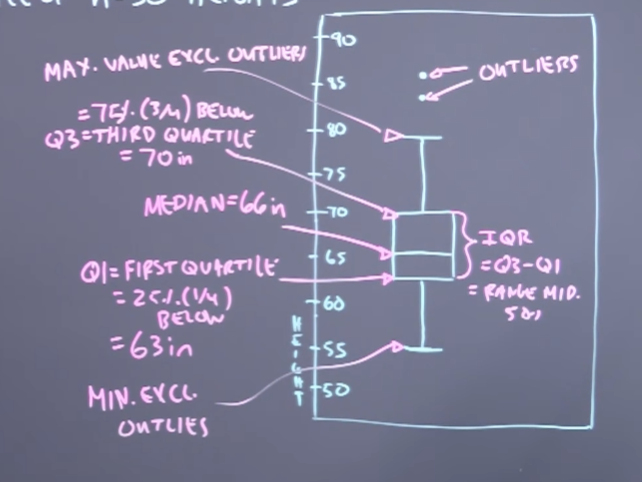 HEIGHTS
MAX. VALUE EXCL. OUTLIERS
= 75%. (3/4) BELOW
Q3 = THIRD QUARTILE
= 70 in
MEDIAN = 66 in
Q1 = FIRST QUARTILE
= 25%. (1/4)
BELOW
= 63 in
MIN. EXCL.
OUTLIES
90
85
80
75
70
65
60
55
50
HEIGHT
OUTLIERS
IQR
= Q3 - Q1
= RANGE MID.
50%